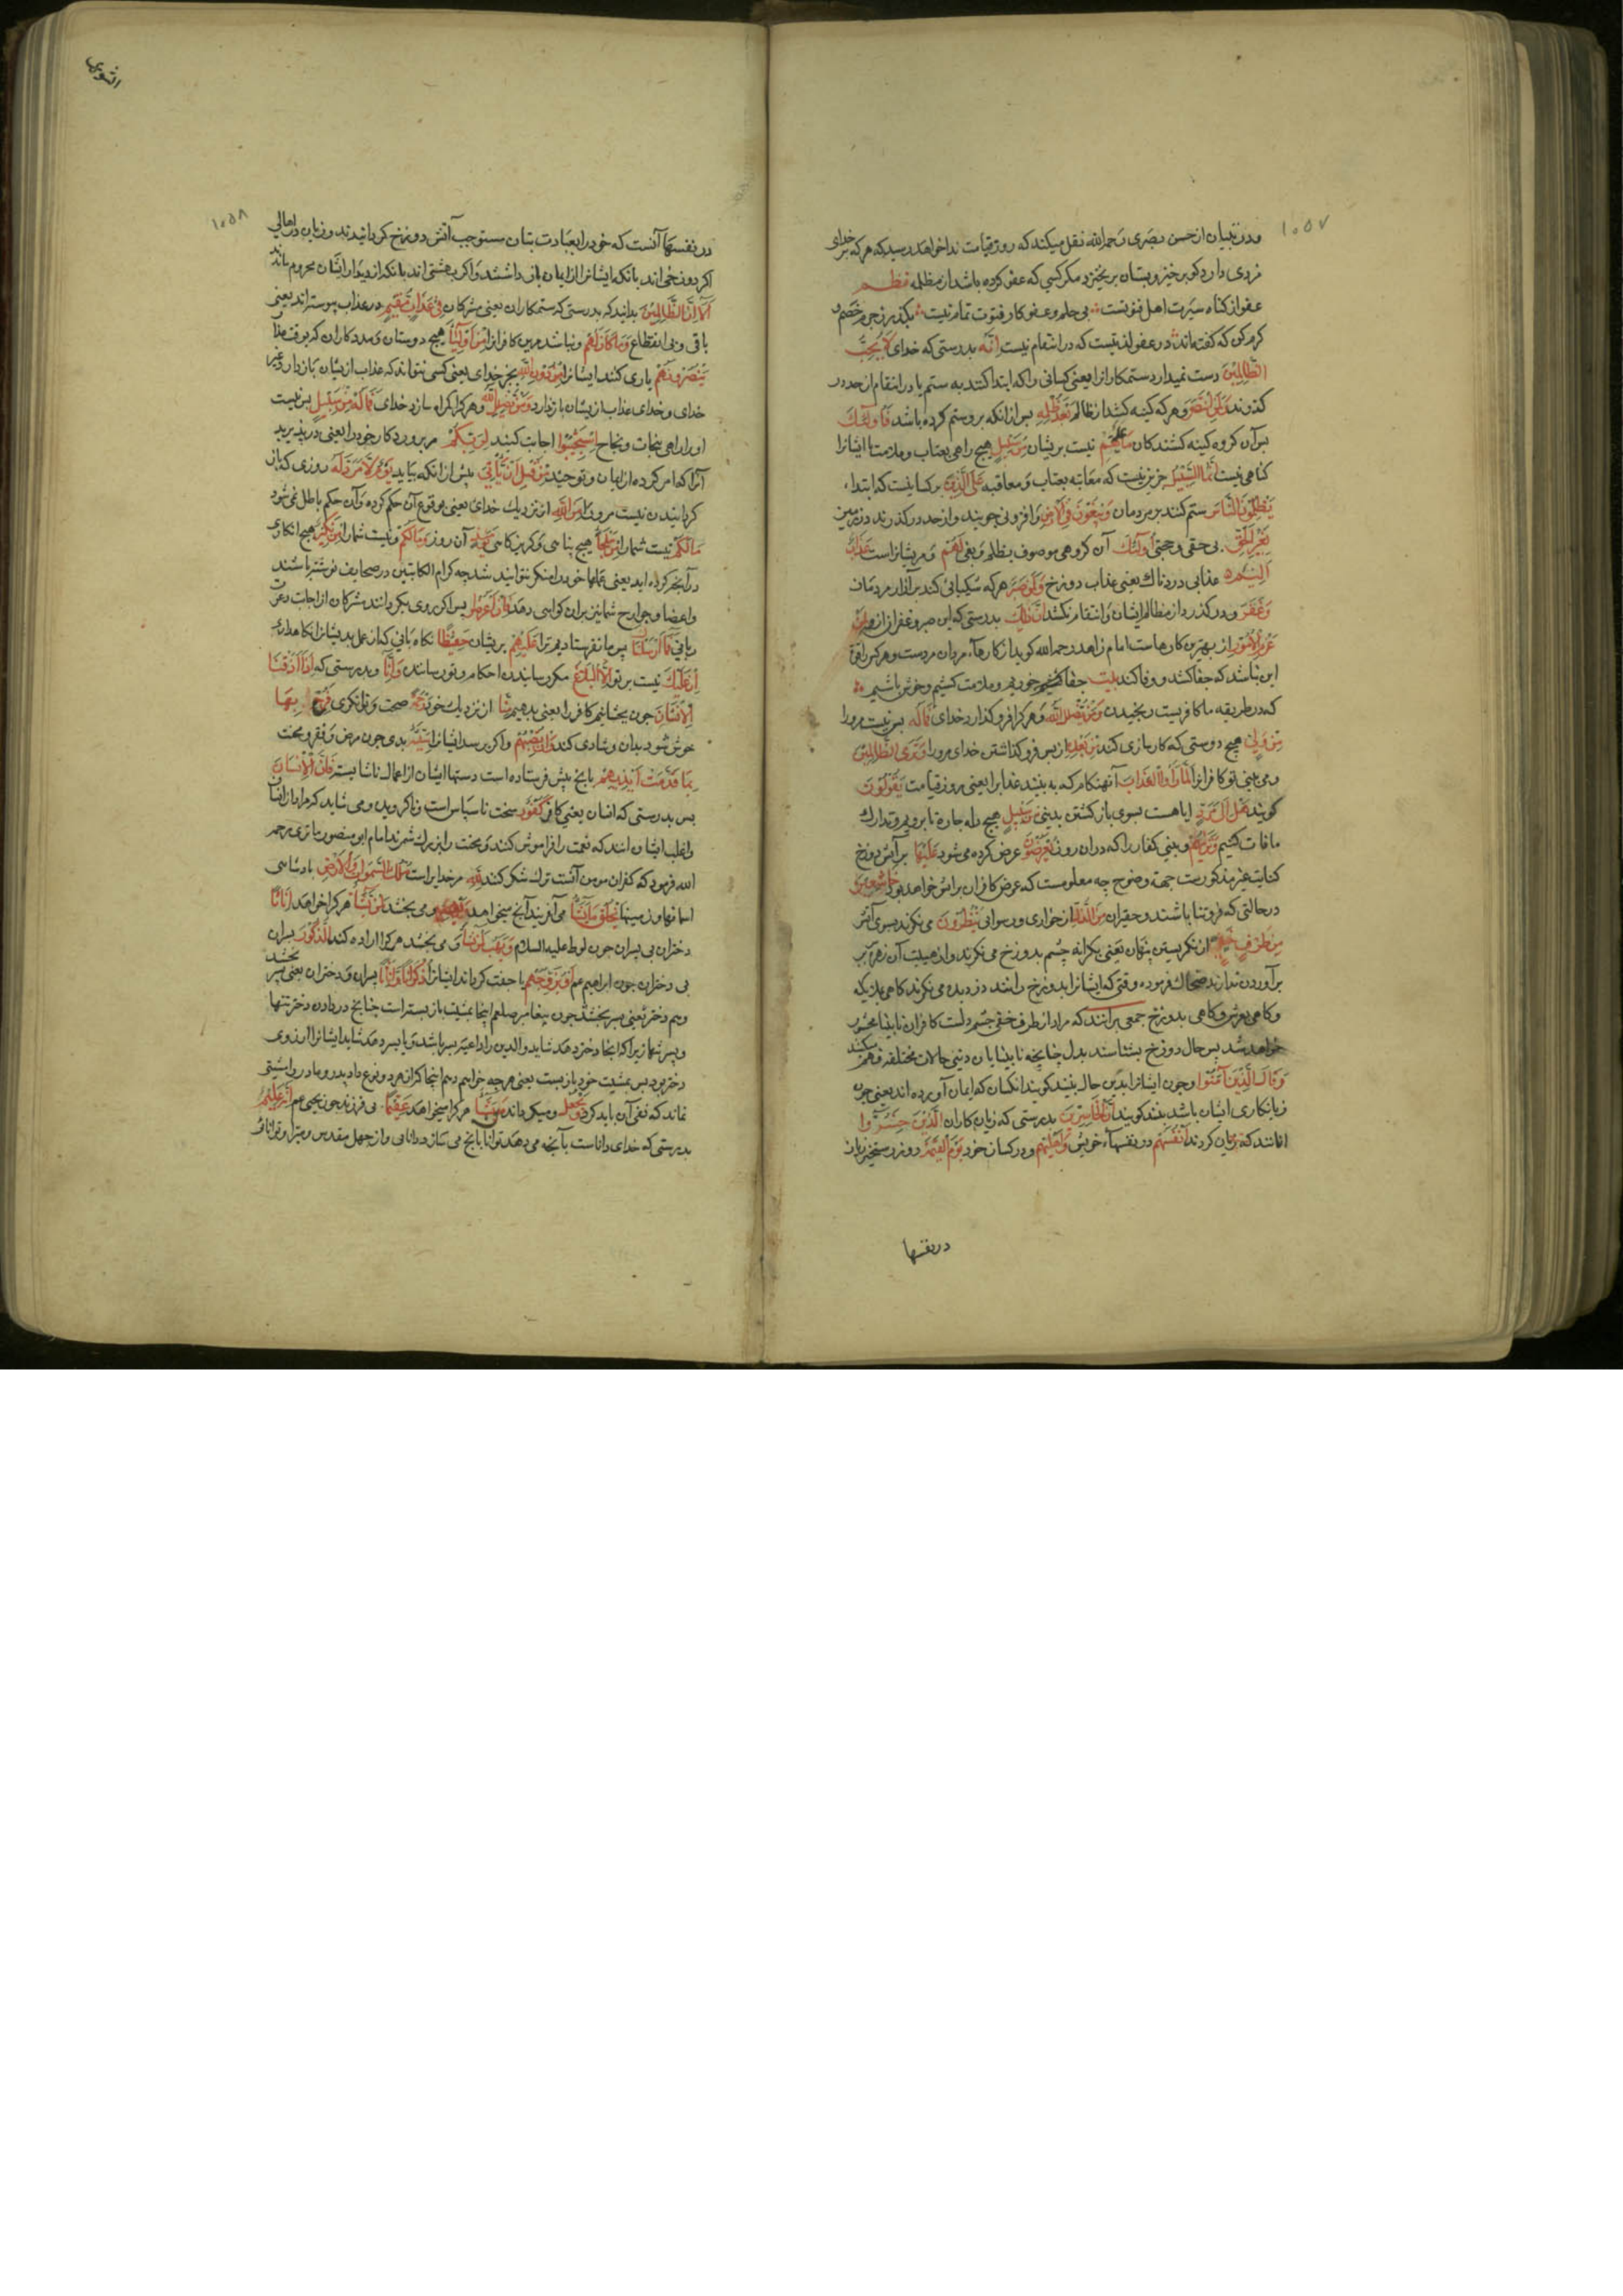 ۱۰۵۷
ودر تبیان از حسن بصری رحمه الله نقل میکند که روز قیامت ندا خواهد رسید که هر که بر خدای
مزدی دارد کو برخیز و بستان برنخیزد مکر کسی که عفو کرده باشد از مظلمه نظم
عفو از کناه سیرت اهل فتوتست بی حلم و عفو کار فتوت تمام نیست بکذر ز جرم خصم و
کرم کن که کفته‌اند در عفو لذتیست که در انتقام نیست إنه بدرستی که خدای لا یحب
الظالمین دوست نمیدارد ستمکارانرا یعنی کسانی را که ابتدا کنند به ستم یا در انتقام از حد در
کذرند ولمن انتصر و هر که کینه کشد از ظالم بعد ظلمه پس از انکه برو ستم کرده باشد فأولئک
پس آن کروه کینه کشندکان ما علیهم نیست بریشان من سبیل هیچ راهی بعتاب و ملامت تا ایشانرا
کناهی نیست إنما السبیل جز این نیست که معاتبه بعتاب و معاقبه علی الذین بر کسانیست که ابتداء
یظلمون الناس ستم کنند بر مردمان ویبغون فی الأرض و افزونی جویند و از حد در کذرند در زمین
بغیر الحق بی حقی و حجتی أولئک آن کروهی موصوف بظلم و بغی لهم و مریشانراست عذاب
ألیم عذابی دردناک یعنی عذاب دوزخ ولمن صبر هر که شکیبائی کند بر آزار مردمان
وغفر و در کذرد از مظالم ایشان و انتقام نکشد إن ذلک بدرستی که این صبر و غفران از من
عزم الأمور از بهترین کارهاست امام زاهد رحمه الله کوید از کارهاء مردان مردست و هر کس را قوت
این نباشد که جفا کشد و وفا کند بیت جفا خوریم و ملامت کشیم و خوش باشیم
که در طریقه ما کافریست رنجیدن ومن یضلل الله و هر کرا فرو کذارد خدای فما له پس نیست مرورا
من ولی هیچ دوستی که کارسازی کند من بعده از پس فرو کذاشتن خدای مرورا وتری الظالمین
و می بینی تو کافرانرا لما رأوا العذاب آنهنکام که به بینند عذابرا یعنی روز قیامت یقولون
کویند هل إلی مرد ایا هست بسوی باز کشتن بدنیی من سبیل هیچ راه چاره تا برویم و تدارک
مافات کنیم وتریهم و بینی کفار را که در ان روز یعرضون عرض کرده می شود علیها بر آتش دوزخ
کنایت غیر مذکورست جهة وضوح چه معلومست که عرض کافران بر اتش خواهد بود خاشعین
در حالتی که فروتنا باشند و حقیران من الذل از خواری و رسوائی ینظرون می نکرند بسوی آتش
من طرف خفی از نکریستن پنهان یعنی بکرانه چشم بدوزخ می نکرند و از هیبت آن زهره بر
برآوردن ندارند ضحاک فرموده وقتی که ایشانرا بدوزخ رانند دزدیده می نکرند کاهی بملایکه
و کاهی بعرش و کاهی بدوزخ جمعی برانند که مراد از طرف خفی چشم دلست کافران نابینا محشور
خواهد شد پس حال دوزخ بشناسند بدل چنانچه نابینایان دنیی حالات مختلفه فهم میکنند
وقال الذین آمنوا و چون ایشانرا بدین حال بینند کویند انکسان که ایمان آورده اند یعنی چون
زیانکاری ایشان باشد بینند کویند إن الخاسرین بدرستی که زیان کاران الذین خسروا
انانند که زیان کردند أنفسهم در نفسهاء خویش وأهلیهم و در کسان خود یوم القیمة روز رستخیز زیان
در نفسها
الشوری
۱۰۵۸
در نفسها آنست که خود را بعبادت بتان مستوجب آتش دوزخ کردانیدند و زیان در اهالی
اکر دوزخی اند بانکه ایشانرا از ایمان باز داشتند و اکر بهشتی اند بانکه از دیدار ایشان محروم ماند
ألا إن الظالمین بدانید که بدرستی که ستمکاران یعنی مشرکان فی عذاب مقیم در عذاب پیوسته اند یعنی
باقی و بی انقطاع وما کان لهم و نباشد مرین کافرانرا من أولیاء هیچ دوستان و مددکاران که بوقت عذاب
ینصرونهم یاری کنند ایشانرا من دون الله بجز خدای یعنی کسی نتواند که عذاب ازیشان باز دارد غیر
خدای و خدای عذاب ازیشان باز ندارد ومن یضلل الله و هر کرا کمراه سازد خدای فما له من سبیل پس نیست
او را راهی بنجات و نجاح استجیبوا اجابت کنید لربکم مر پروردکار خود را یعنی در پذیرید
آنرا که امر کرده از ایمان و توحید من قبل أن یأتی پیش از انکه بیاید یوم لا مرد له روزی که باز
کردانیدن نیست مرورا من الله از نزدیک خدای یعنی بوقوع آن حکم کرده و آن حکم باطل نمی شود
ما لکم نیست شما را من ملجأ هیچ پناهی و کریزکاهی یومئذ آن روز وما لکم و نیست شما را من نکیر هیچ انکاری
در آنچه کرده اید یعنی عملها خود را منکر نتوانید شد چه کرام الکاتبین در صحایف نوشته باشند
و اعضا و جوارح شما نیز بران کواهی دهد فإن أعرضوا پس اکر روی بکردانند مشرکان از اجابت دعوت
ربانی فما أرسلناک پس ما نفرستادیم ترا علیهم بریشان حفیظا نکاهبانی که از عمل بد یشانرا نکاهداری
إن علیک نیست بر تو إلا البلاغ مکر رسانیدن احکام و تو رسانیدی وإنا و بدرستی که إذا أذقنا
الإنسان چون بچشانیم کافر را یعنی بدهیم منا از نزدیک خود رحمة صحت و توانکری فرح بها
خوش شود بدان و شادی کند وإن تصبهم و اکر برسد ایشانرا سیئة بدی چون مرض و فقر و محنت
بما قدمت أیدیهم بانچه پیش فرستاده است دستها ایشان از اعمال ناشایسته فإن الإنسان
پس بدرستی که انسان یعنی کافر کفور سخت ناسپاس است و ناکرویده و می شاید که مراد از انسان
و اغلب ایشان انند که نعمت را فراموش کنند و محنت را بزرک شمرند امام ابو منصور ماتریدی رحمه
الله فرمود که کفران مومن آنست ترک شکر کند لله مر خدایراست ملک السموات والأرض پادشاهی
اسمانها و زمینها یخلق ما یشاء می آفریند آنچه میخواهد یهب و می بخشد لمن یشاء هر کرا خواهد إناثا
دختران بی پسران چون لوط علیه السلام ویهب لمن یشاء و می بخشد هر کرا اراده کند الذکور پسران
بی دختران چون ابراهیم عم أو یزوجهم یا جفت کرداند ایشانرا ذکرانا وإناثا پسران و دختران یعنی پسر بخشد
و هم دختر یعنی پسر بخشد چون پیغامبر صلعم اینجا بمشیت باز بسته است چنانچه در دادن دختر تنها
و پسر تنها زیرا که انجا دختر دهد شاید والدین را داعیه پسر باشد و یا پسر دهد شاید ایشانرا آرزوی
دختر بود پس بمشیت خود باز بست یعنی هر چه خواهیم دهیم اینجا که از هر دو نوع داد پدر و مادر را مشیتی
نماند که نفی آن باید کرد ویجعل و میکرداند من یشاء هر کرا میخواهد عقیما بی فرزند چون یحیی عم إنه علیم
بدرستی که خدای داناست بآنچه می دهد توانا بانچه می سازد دانایی و از جهل مقدس و مبرا و توانائی